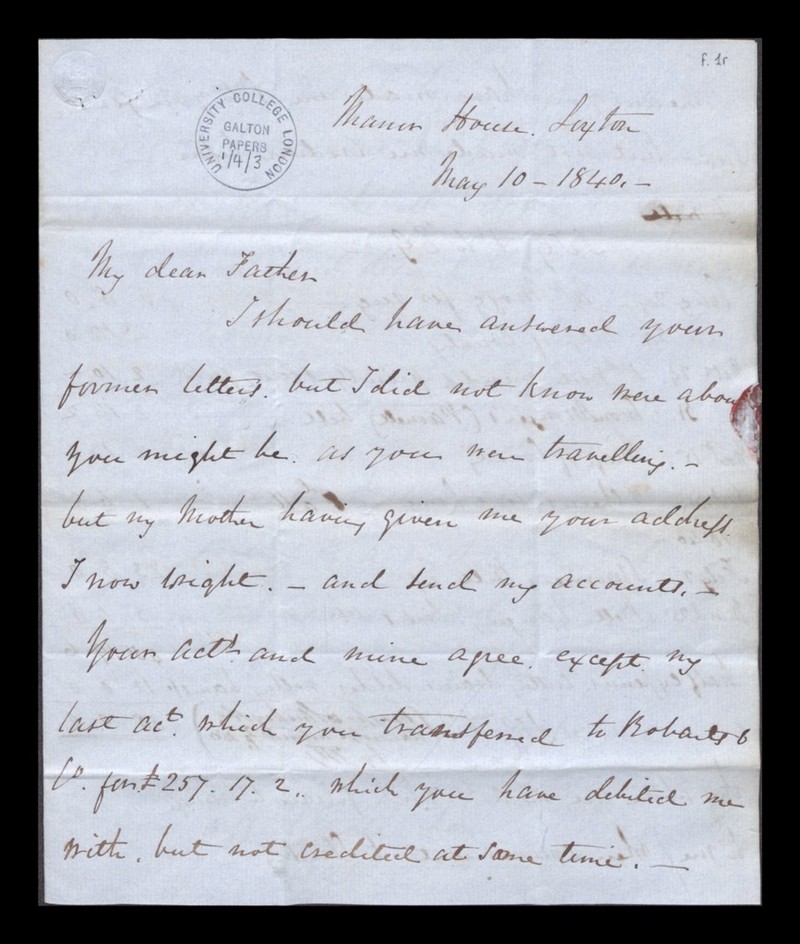 f. 1r
UNIVERSITY COLLEGE LONDON
GALTON
PAPERS
1/4/3
Manor House. Loxton
May 10 - 1840. -
My dear Father
I should have answered your
former letters. but I did not know were abou
you might be. as you were travelling. -
but my Mother having given me your address.
I now wright. - and send my accounts. -
Your acts. and mine agree. except my
last act. which you transferred to Robarts &
Co. for £257. 17. 2.. which you have debited me
with. but not credited at same time. -